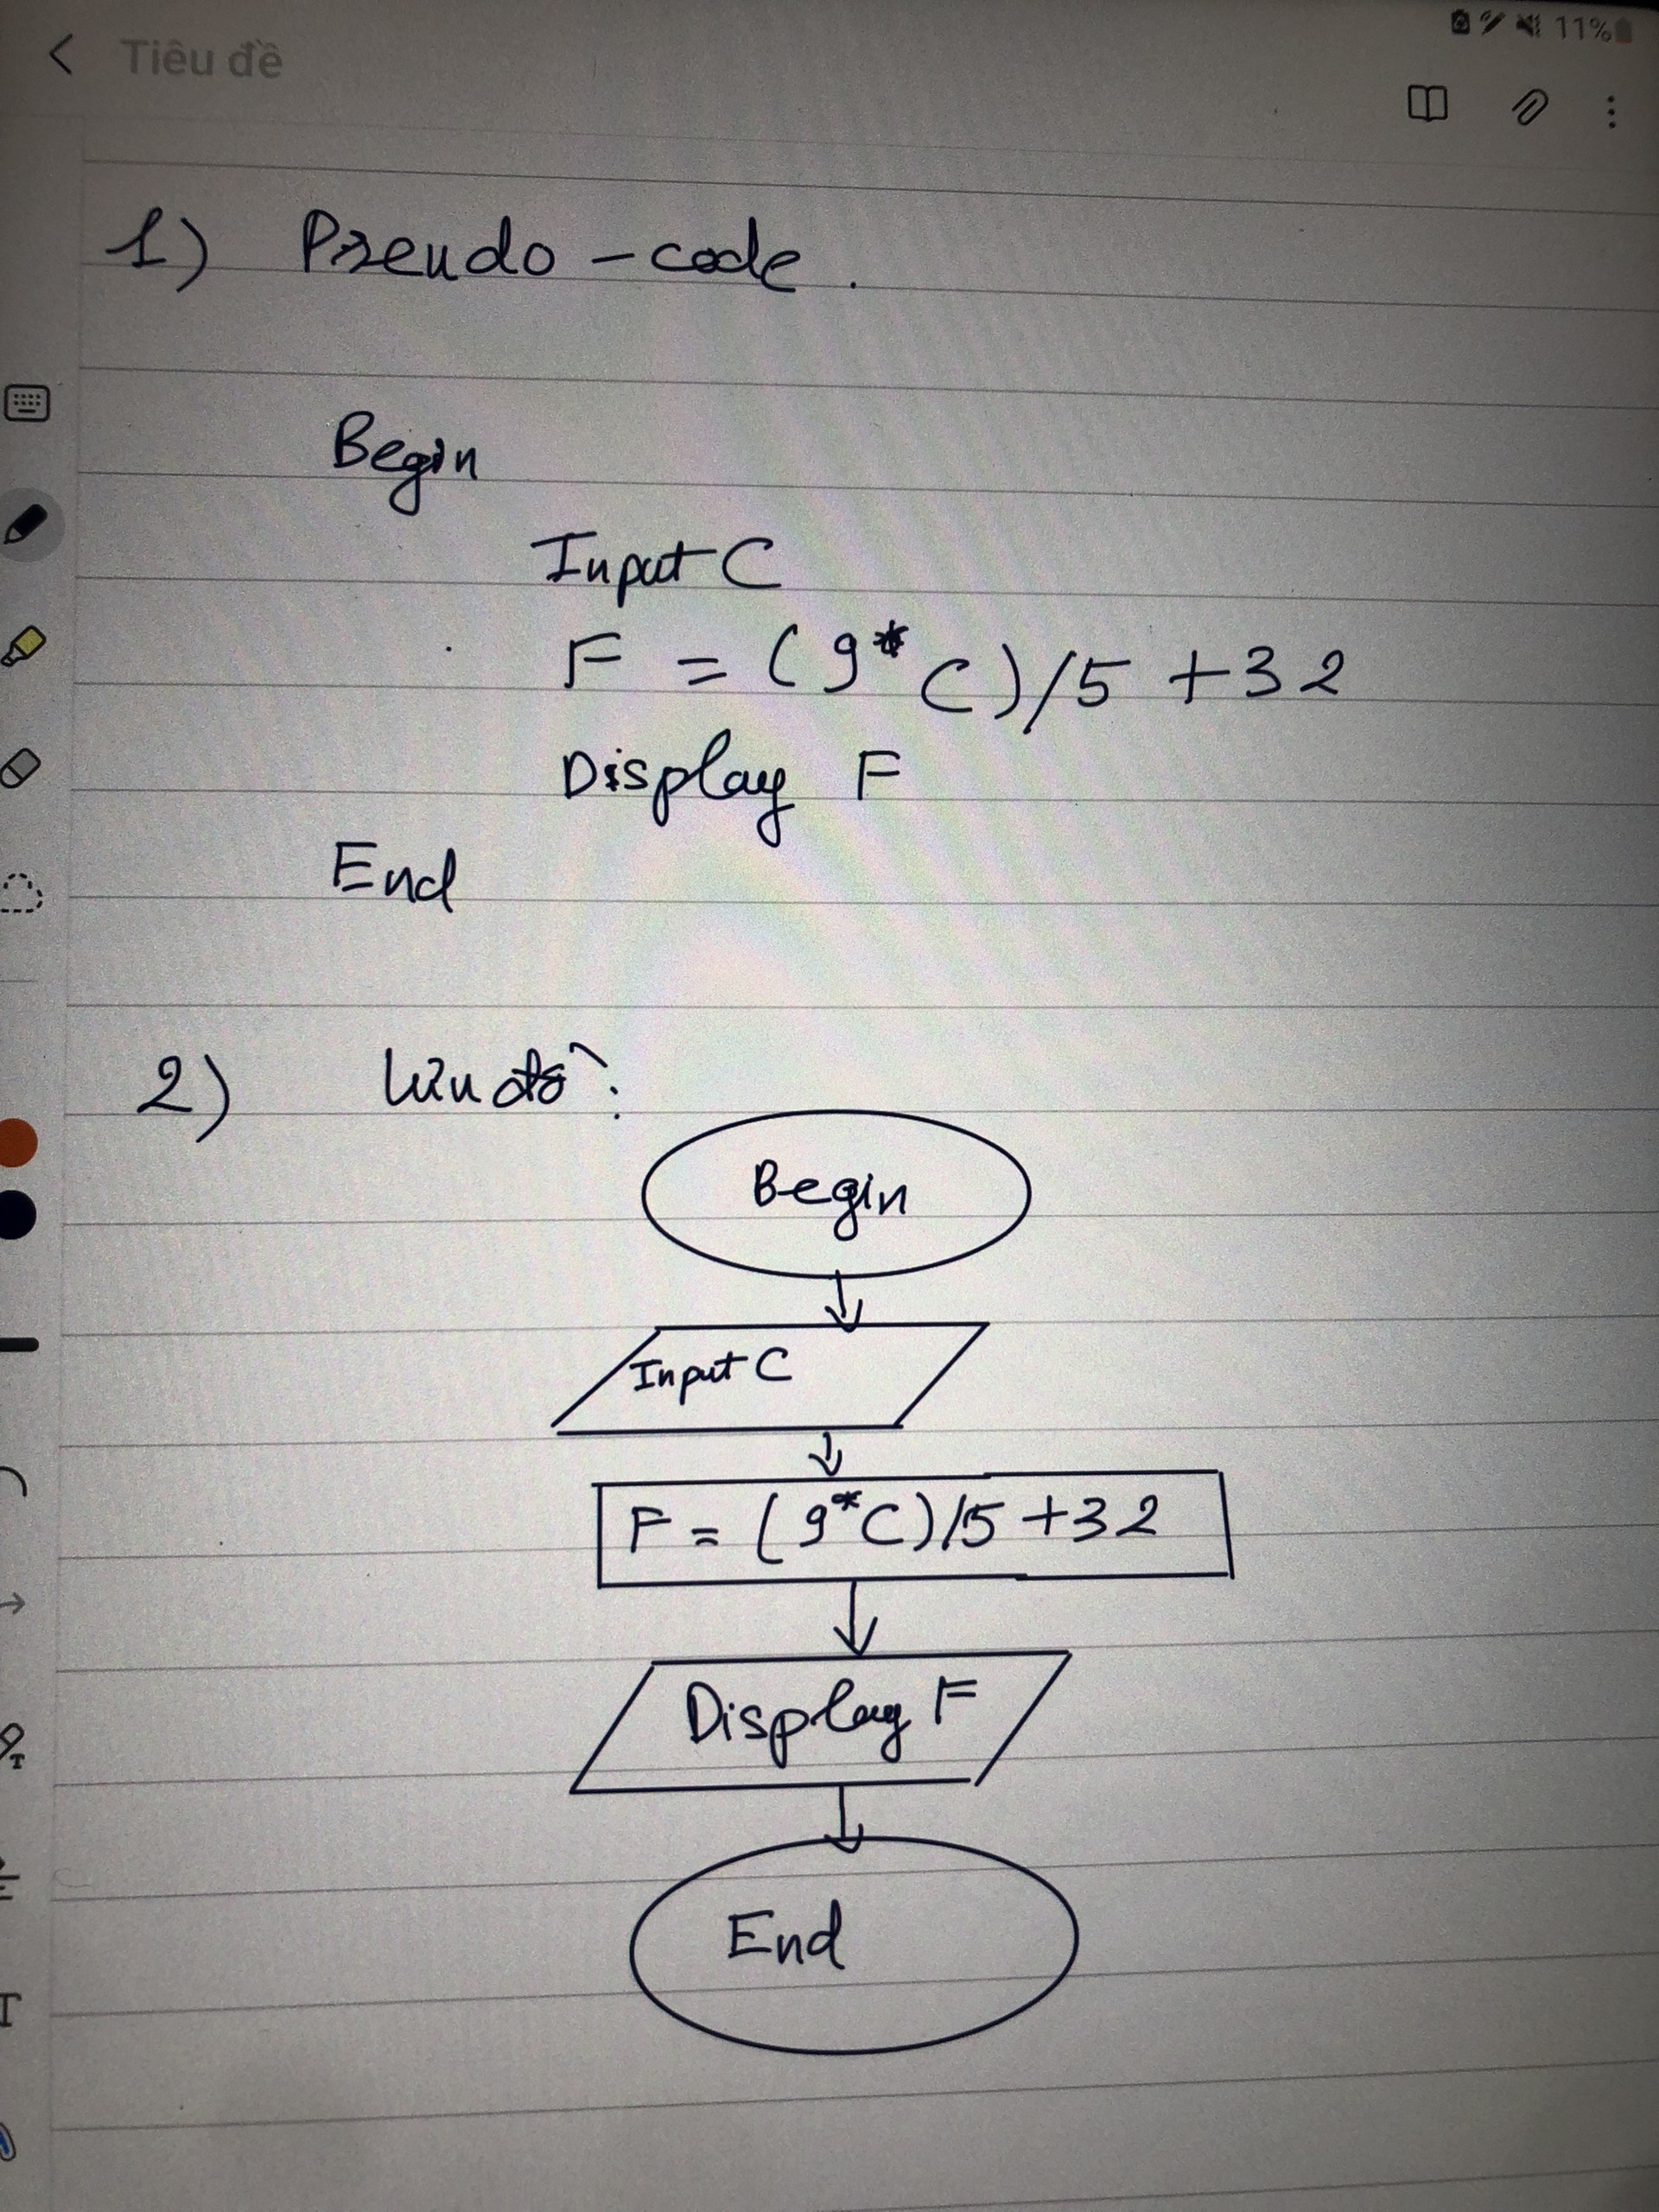 Tiêu đề
11%
1) Pseudo - code.
Begin
Input C
F = (9*C)/5 +32
Display F
End
2) Lưu đồ:
Begin
Input C
F = (9*C)/5 +32
Display F
End